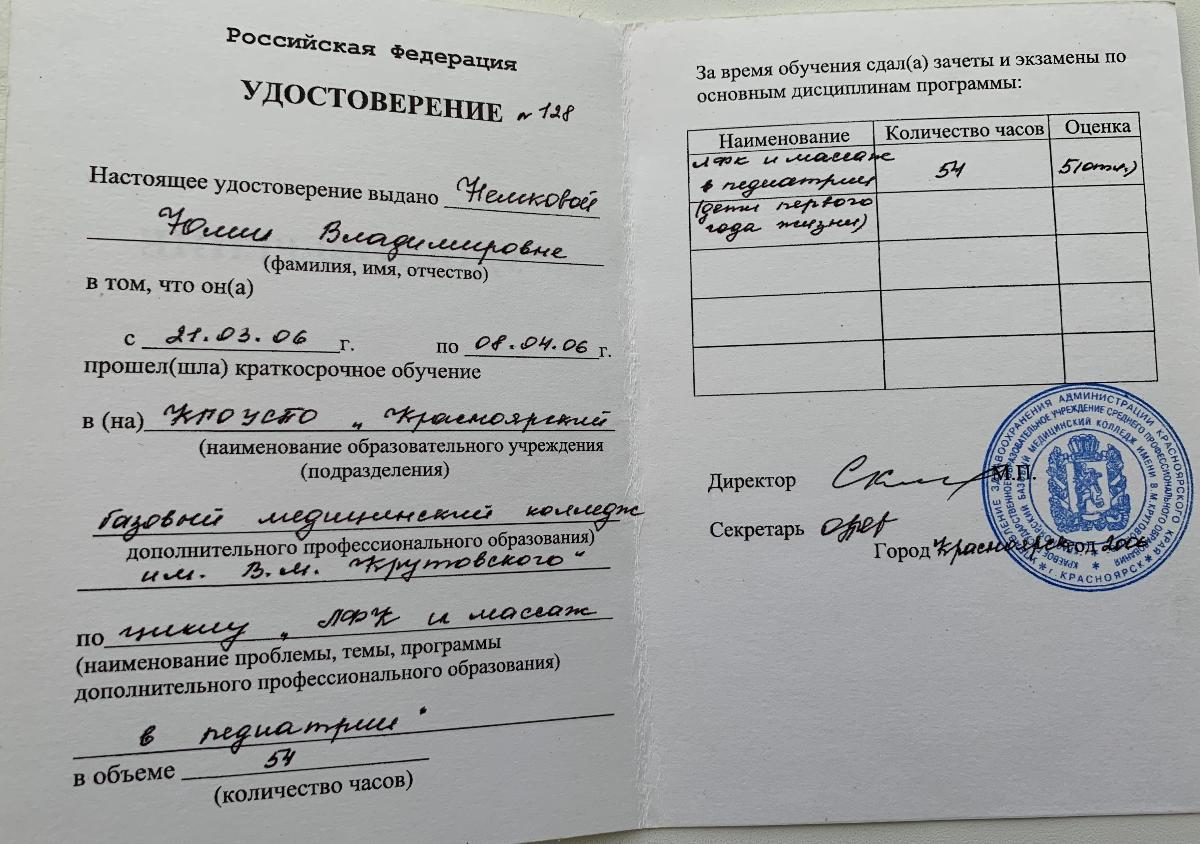 Российская Федерация
УДОСТОВЕРЕНИЕ № 128
Настоящее удостоверение выдано Немковой
Юлии Владимировне
(фамилия, имя, отчество)
в том, что он(а)
с 21.03.06 г. по 08.04.06 г.
прошел(шла) краткосрочное обучение
в (на) КГОУСПО „Красноярский
(наименование образовательного учреждения
(подразделения)
базовый медицинский колледж
дополнительного профессионального образования)
им. В.М. Крутовского"
по циклу „ЛФК и массаж
(наименование проблемы, темы, программы
дополнительного профессионального образования)
в педиатрии"
в объеме 54
(количество часов)
За время обучения сдал(а) зачеты и экзамены по
основным дисциплинам программы:
Наименование Количество часов Оценка
ЛФК и массаж
в педиатрии 54 5(отл.)
(дети первого
года жизни)
Директор М.П.
Секретарь
Город Красноярск год 2006
УПРАВЛЕНИЕ ЗДРАВООХРАНЕНИЯ АДМИНИСТРАЦИИ КРАСНОЯРСКОГО КРАЯ
* г. КРАСНОЯРСК *
КРАЕВОЕ ГОСУДАРСТВЕННОЕ ОБРАЗОВАТЕЛЬНОЕ УЧРЕЖДЕНИЕ СРЕДНЕГО ПРОФЕССИОНАЛЬНОГО ОБРАЗОВАНИЯ
КРАСНОЯРСКИЙ БАЗОВЫЙ МЕДИЦИНСКИЙ КОЛЛЕДЖ ИМЕНИ В.М. КРУТОВСКОГО